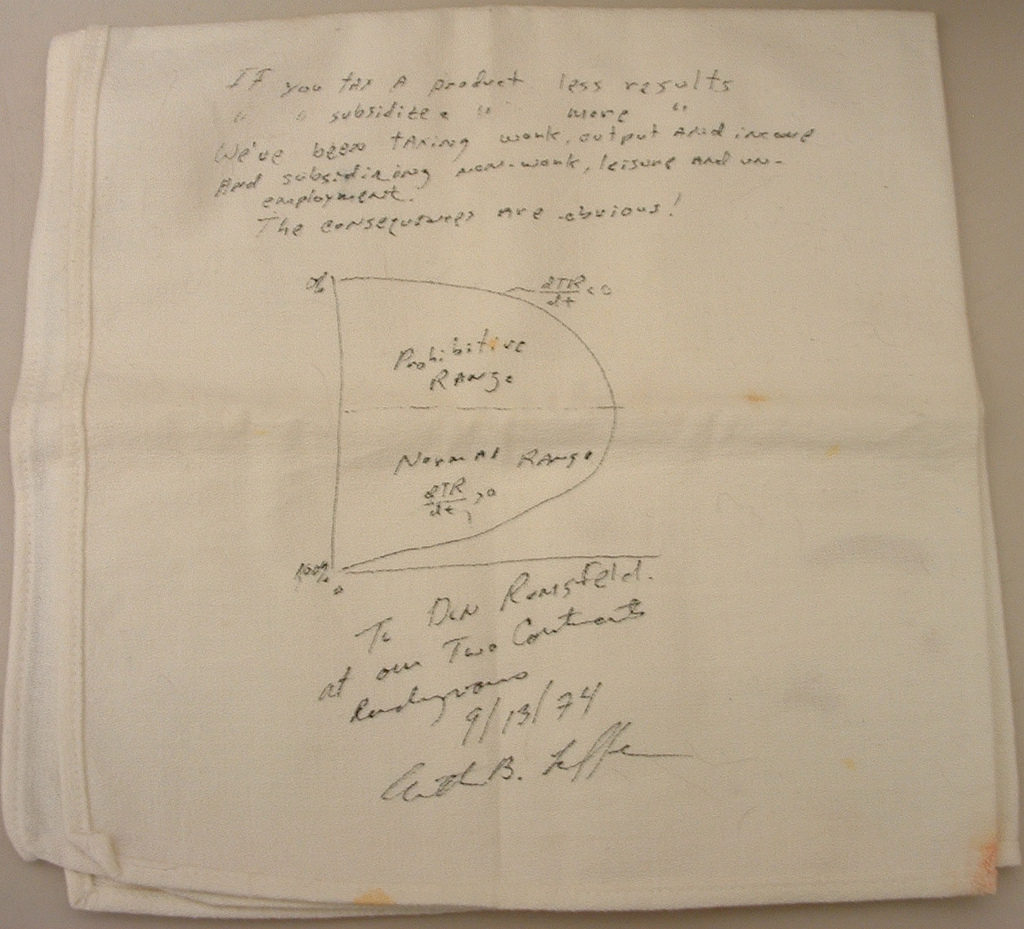 If you tax a product less results
" " subsidize " " more "
We've been taxing work, output and income
and subsidizing non-work, leisure and un-
employment.
The consequences are obvious!
dTR/dt < 0
Prohibitive
Range
Normal Range
dTR/dt > 0
100%
0
To Don Rumsfeld.
at our Two Continents
Rendezvous
9/13/74
Arthur B. Laffer